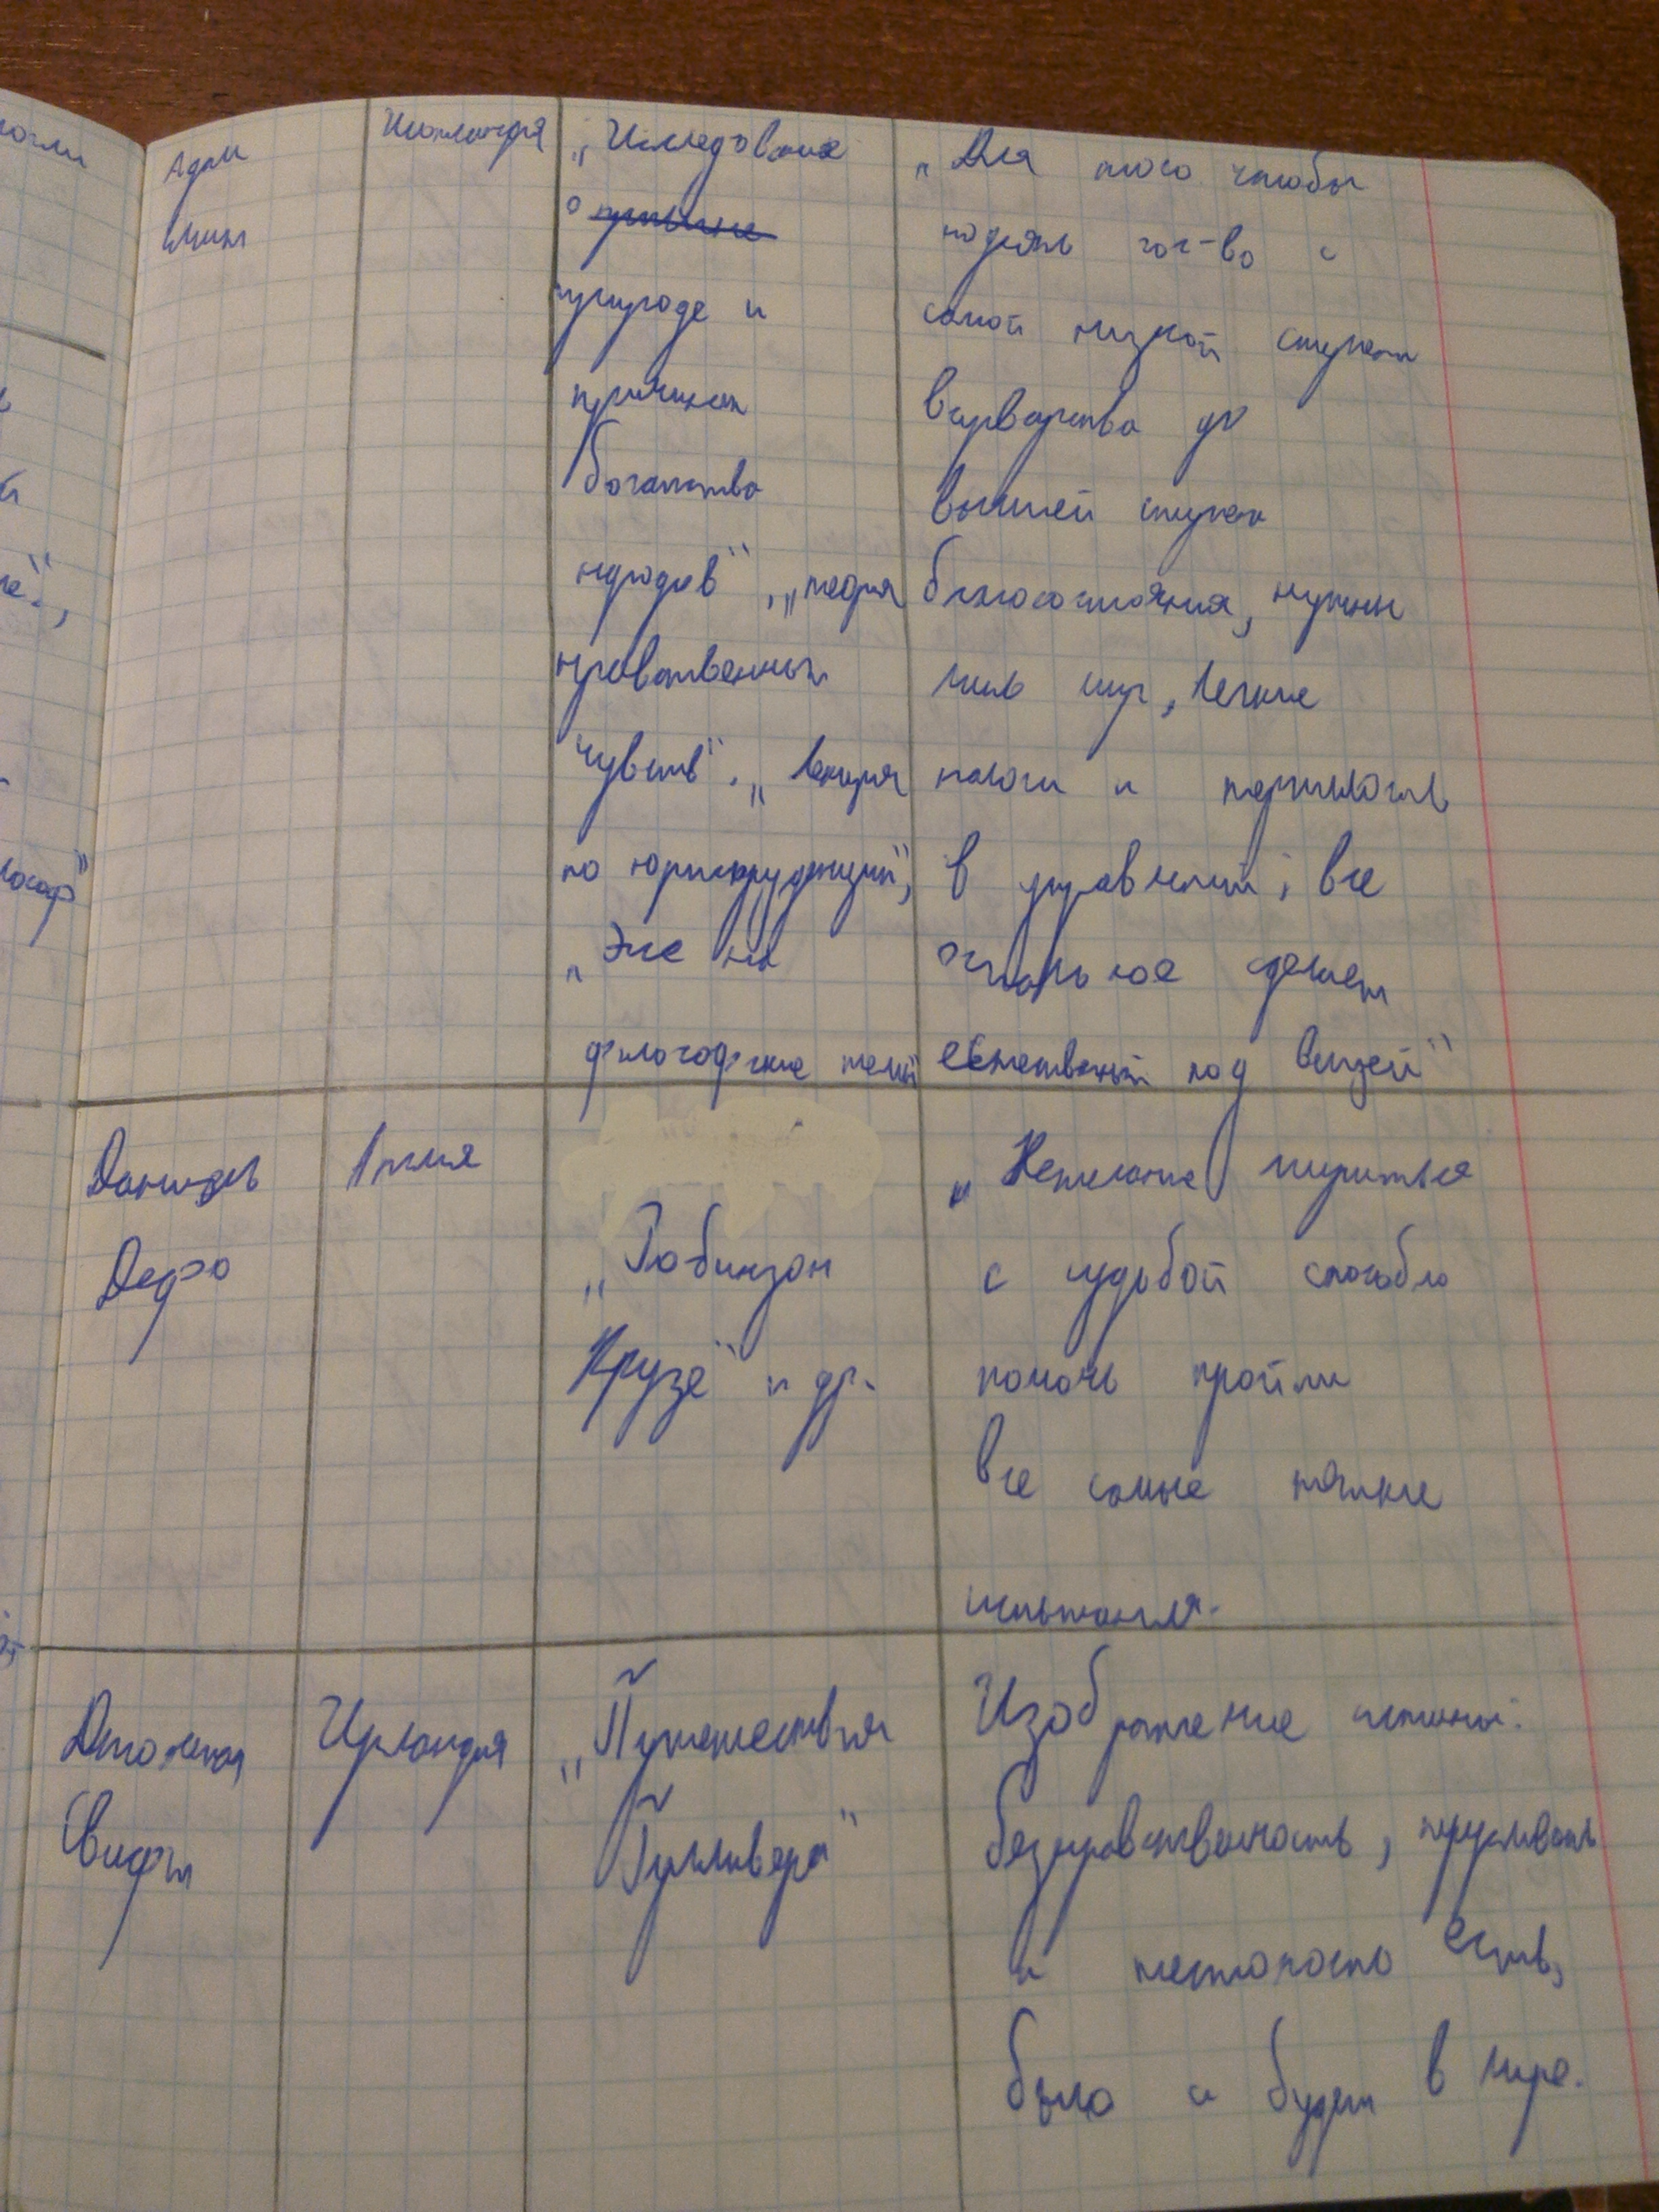 Адам
Смит
Шотландия
„Исследование
о причине
природе и
причинах
богатства
народов", „теория
нравственных
чувств", „Лекция
по юриспруденции",
„Эссе на
философские темы"
„Для того чтобы
поднять гос-во с
самой низкой ступени
варварства до
высшей ступени
благосостояния, нужны
лишь мир, легкие
налоги и терпимость
в управлении; все
остальное сделает
естественный ход вещей"
Даниэль
Дефо
Англия
„Робинзон
Крузо" и др.
„Нежелание мириться
с судьбой способно
помочь пройти
все самые тяжкие
испытания.
Джонатан
Свифт
Ирландия
„Путешествия
Гулливера"
Изображение истины:
безнравственность,
и жестокость есть,
было и будет в мире.